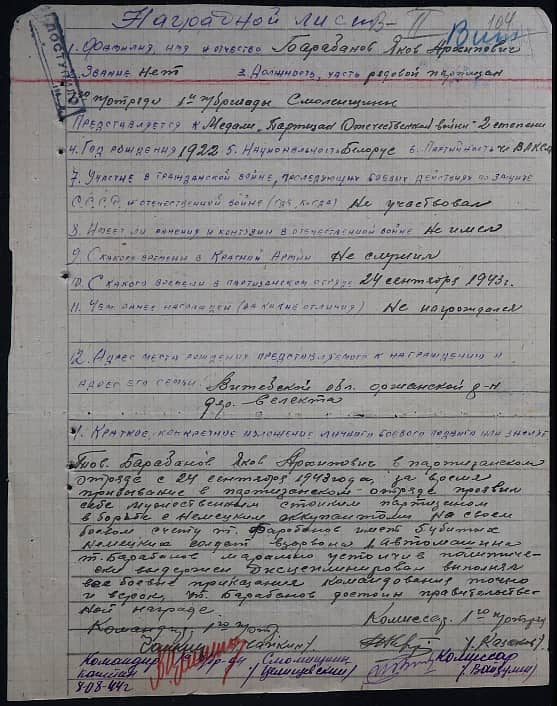 Наградной лист
104
1. Фамилия, имя и отчество Барабанов Яков Архипович
2. Звание нет 3. Должность, часть рядовой партизан
1го п/отряда 1й п/бригады Смоленщины
Представляется к Медали „Партизан Отечественной войны" 2 степени
4. Год рождения 1922 5. Национальность Белорус 6. Партийность чл ВЛКСМ
7. Участие в гражданской войне, последующих боевых действиях по защите
С.С.С.Р. и отечественной войне (где, когда) Не участвовал
8. Имеет ли ранения и контузии в отечественной войне Не имел
9. С какого времени в Красной Армии Не служил
10. С какого времени в партизанском отряде 24 сентября 1943 г.
11. Чем ранее награжден (за какие отличия) Не награждался
12. Адрес места рождения представляемого к награждению и
адрес его семьи. Витебской обл. оршанской р-н
дер. велекта
1. Краткое, конкретное изложение личного боевого подвига или заслуг
Тов. Барабанов Яков Архипович в партизанском
отряде с 24 сентября 1943 года, за время
прибывание в партизанском отряде проявил
себе мужественным стойким партизаном
в борьбе с немецким оккпантоми на своем
боевом счету т. Барабанов имет 5 убитых
немецких солдат взорвона 1 автомашина
т. Барабанов марально устойчив политиче-
ски выдержен дисциплинирован выполнял
все боевые приказания командования точно
и верок, т. Барабанов достоин правительстве-
ной награде.
Командир 1го п/отр Комиссар 1го п/отряда
/Чайкин/
Командир 1 п/бр-ды Смоленщины Комиссар
капитан
8.08.44г